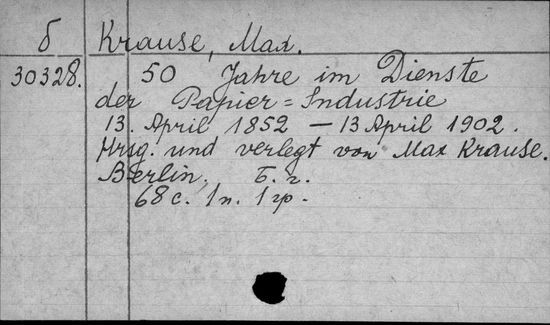 б Krause, Max.
30328. 50 Jahre im Dienste
der Papier=Industrie
13. April 1852 — 13 April 1902.
Hrsg. und verlegt von Max Krause.
Berlin. Б. г.
68 с. 1 п. 1 гр.